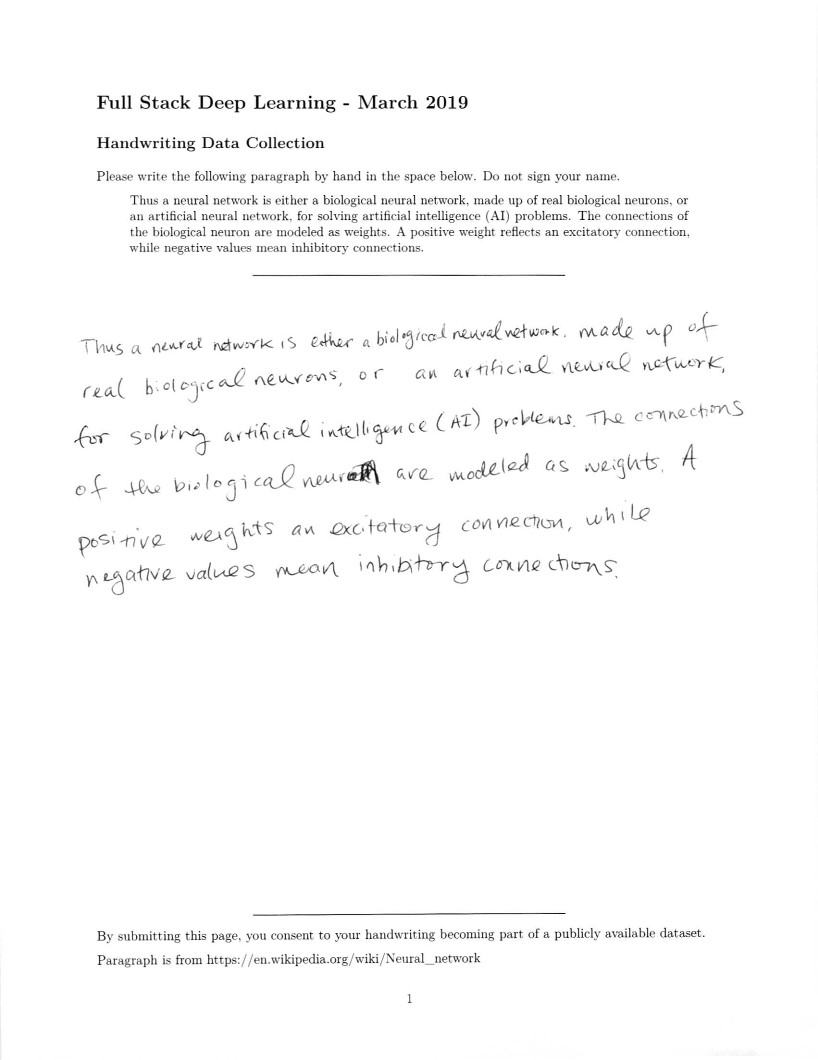 Full Stack Deep Learning - March 2019
Handwriting Data Collection
Please write the following paragraph by hand in the space below. Do not sign your name.
Thus a neural network is either a biological neural network, made up of real biological neurons, or
an artificial neural network, for solving artificial intelligence (AI) problems. The connections of
the biological neuron are modeled as weights. A positive weight reflects an excitatory connection,
while negative values mean inhibitory connections.
Thus a neural network is either a biological neural network. made up of
real biological neurons, or an artificial neural network,
for solving artificial intelligence (AI) problems. The connections
of the biological neuron are modeled as weights. A
positive weights an excitatory connection, while
negative values mean inhibitory connections.
By submitting this page, you consent to your handwriting becoming part of a publicly available dataset.
Paragraph is from https://en.wikipedia.org/wiki/Neural_network
1